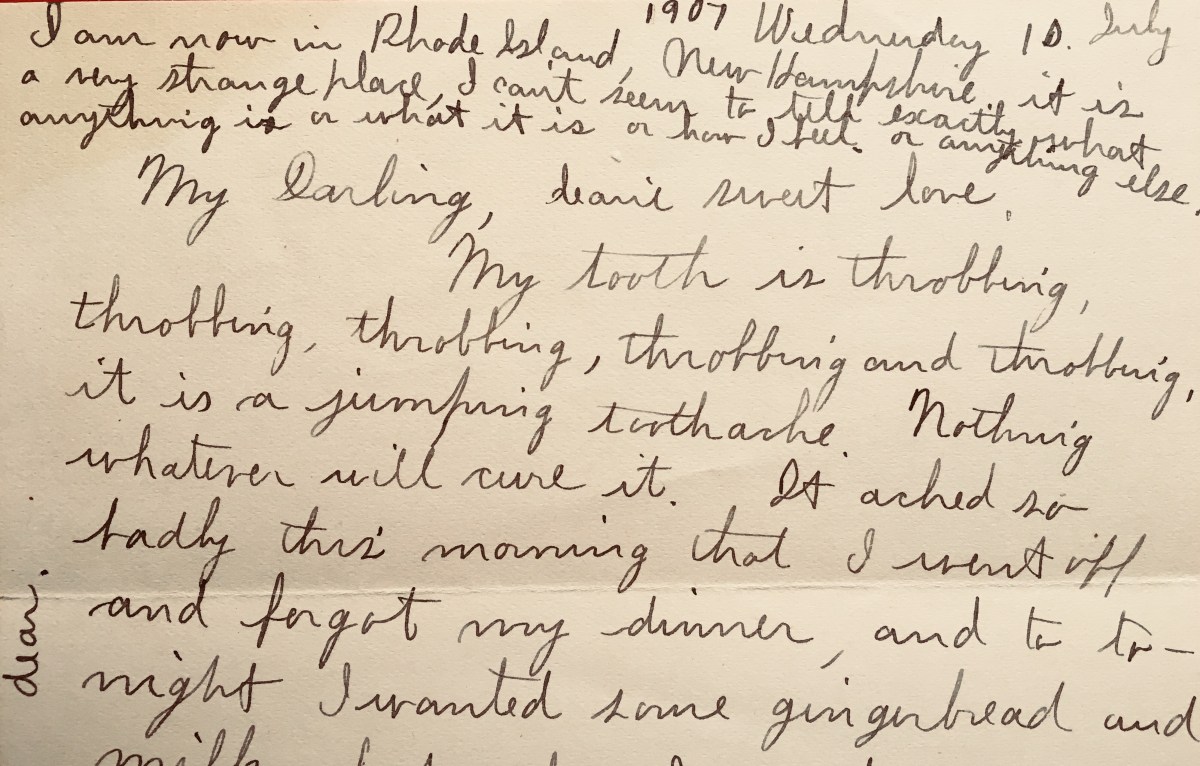 1907 Wednesday 10. July
I am now in Rhode Island, New Hampshire, it is
a very strange place, I can't seem to tell exactly what
anything is or what it is or how I feel. or anything else.
My Darling, dearie sweet love,
My tooth is throbbing,
throbbing, throbbing, throbbing and throbbing,
it is a jumping toothache. Nothing
whatever will cure it. It ached so
badly this morning that I went off
and forgot my dinner, and to to-
night I wanted some gingerbread and
milk
dear.